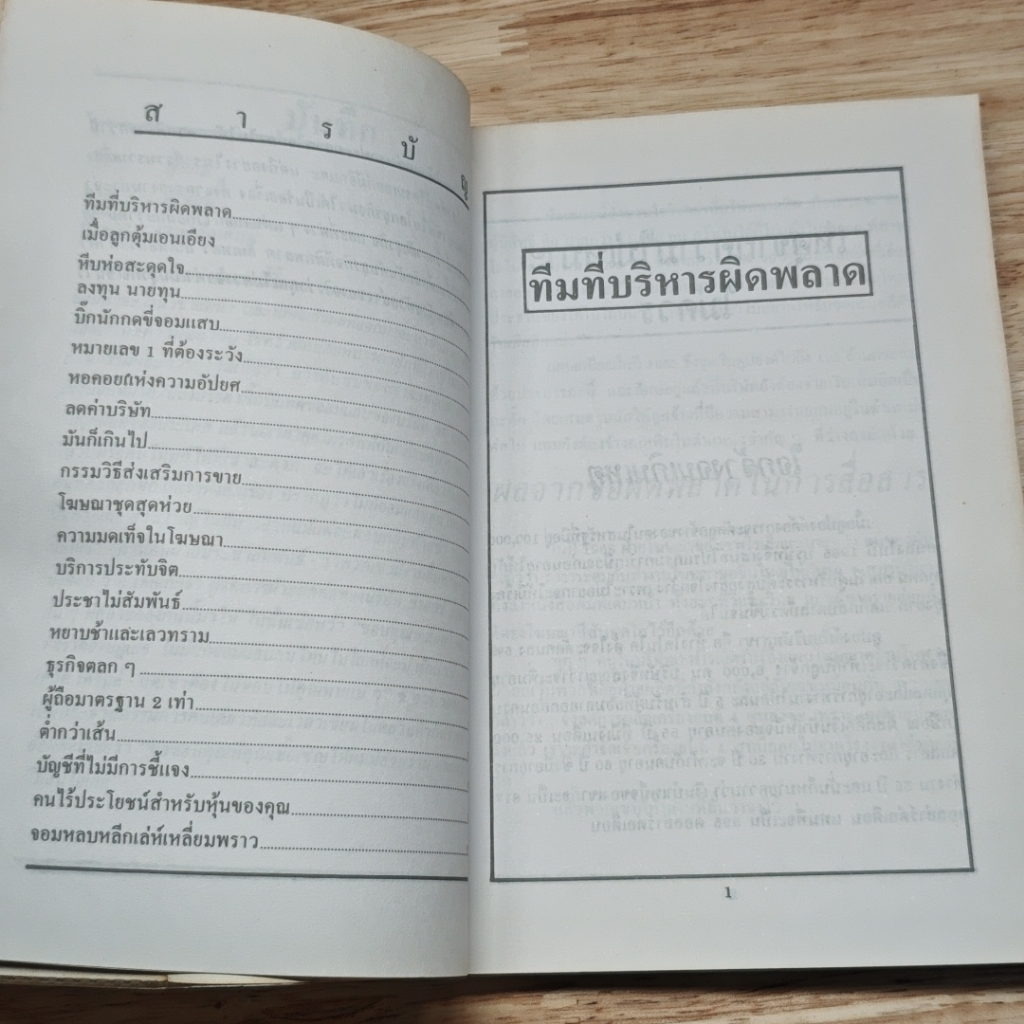 สารบัญ
ทีมที่บริหารผิดพลาด
เมื่อลูกตุ้มเอนเอียง
หีบห่อสะดุดใจ
ลงทุน นายทุน
บิ๊กนักกดขี่จอมแสบ
หมายเลข 1 ที่ต้องระวัง
หอคอยแห่งความอัปยศ
ลดค่าบริษัท
มันก็เกินไป
กรรมวิธีส่งเสริมการขาย
โฆษณาชุดสุดห่วย
ความมดเท็จในโฆษณา
บริการประทับจิต
ประชาไม่สัมพันธ์
หยาบช้าและเลวทราม
ธุรกิจตลก ๆ
ผู้ถือมาตรฐาน 2 เท่า
ต่ำกว่าเส้น
บัญชีที่ไม่มีการชี้แจง
คนไร้ประโยชน์สำหรับหุ้นของคุณ
จอมหลบหลีกเล่ห์เหลี่ยมพราว
ทีมที่บริหารผิดพลาด
1